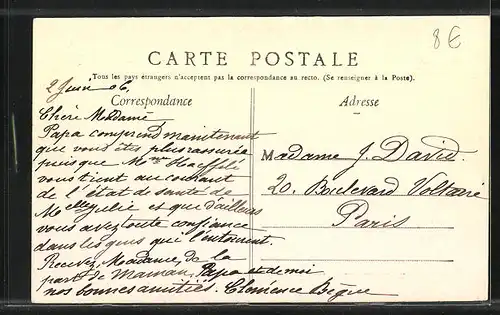 8€
CARTE POSTALE
Tous les pays étrangers n'acceptent pas la correspondance au recto. (Se renseigner à la Poste).
Correspondance
2 Juin 06.
Chère Madame
Papa comprend maintenant
que vous êtes plus rassurée
puisque Mme Haeffelé
vous tient au courant
de l'état de santé de
Melle Julie et que d'ailleurs
vous avez toute confiance
dans les gens qui l'entourent.
Recevez, Madame, de la
part de Maman, Papa et de moi
nos bonnes amitiés. Clémence Bègue
Adresse
Madame J. David.
20. Boulevard Voltaire
Paris